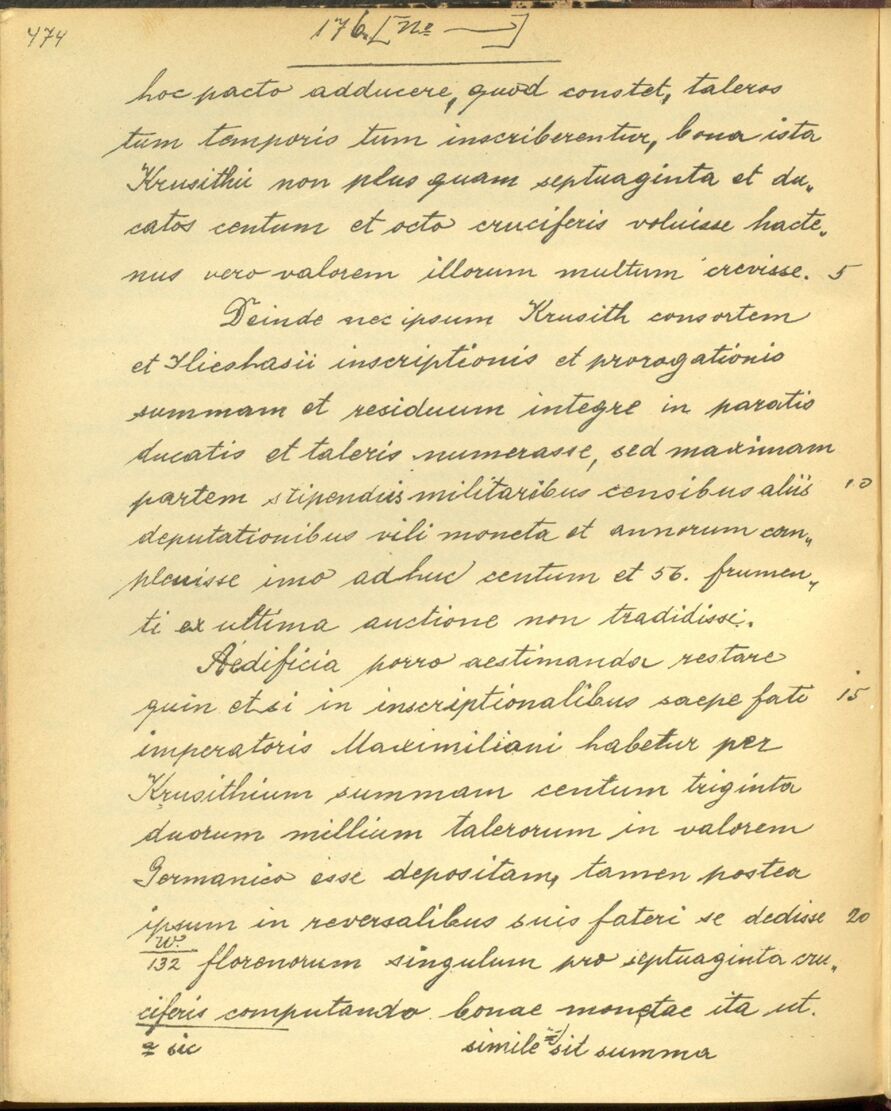 474
176. [No —]
hoc pacto adducere, quod constet, taleros
tum temporis tum inscriberentur, bona ista
Krusithii non plus quam septuaginta et du„
catos centum et octo cruciferis voluisse hacte„
nus vero valorem illorum multum crevisse. 5
Deinde nec ipsum Krusith consortem
et Ilieshasii inscriptionis et prorogationis
summam et residuum integre in paratis
ducatis et taleris numerasse, sed maximam
partem stipendiis militaribus censibus aliis 10
deputationibus vili moneta et annorum com„
plevisse imo adhuc centum et 56. frumen„
ti ex ultima auctione non tradidisse.
Aedificia porro aestimanda restare
quin etsi in inscriptionalibus saepe fati 15
imperatoris Maximiliani habetur per
Krusithium summam centum triginta
duorum millium talerorum in valorem
Germanico esse depositam, tamen postea
ipsum in reversalibus suis fateri se dedisse 20
132 florenorum singulum pro septuaginta cru„
ciferis computando bonae monetae ita ut.
a sic simile sit summa